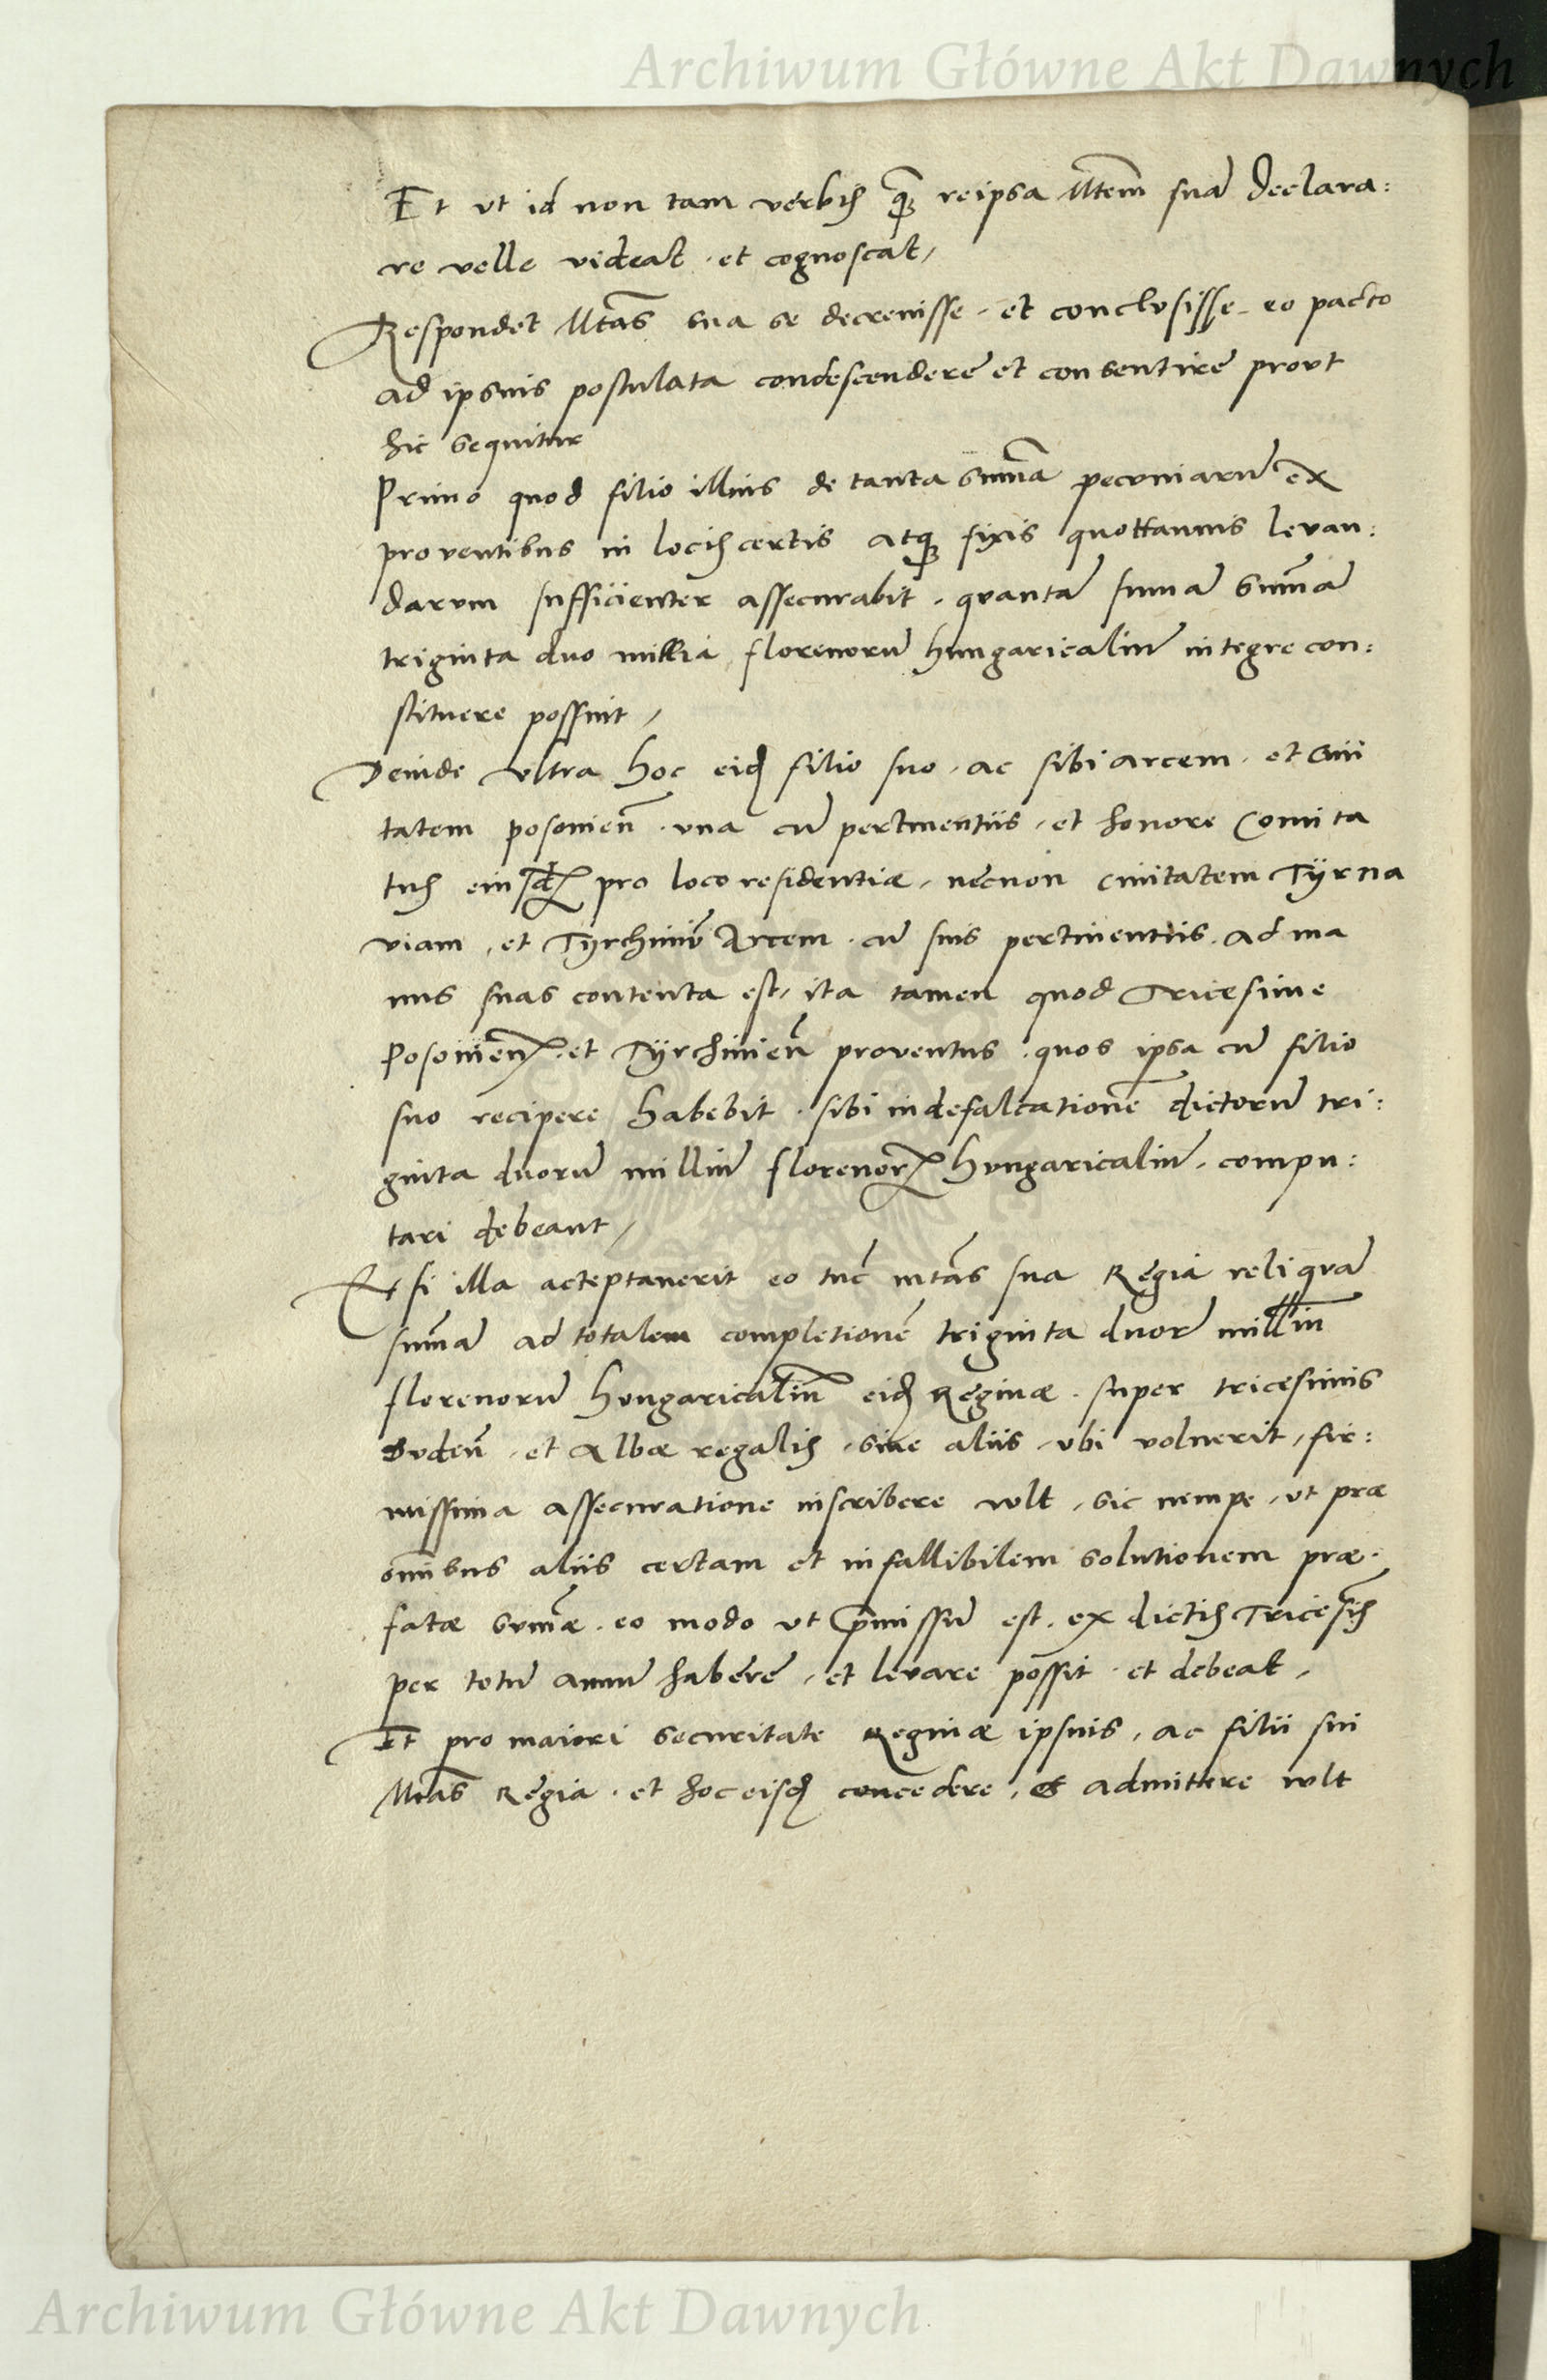 Archiwum Główne Akt Dawnych
Et vt id non tam verbis q̃ȝ reipsa Mtem̃ suã declara:
re velle videat · et cognoscat,
Respondet Mtãs sua se decreuisse · et conclvsisse · eo pacto
ad ipsius postulata condescendere et consentire provt
hic sequitur
Primo quod filio illius de tanta sum̃a pecvniarũ ex
proventibus in locis certis atqȝ fixis quottannis levan:
darvm sufficienter assecurabit · qvantã suma sum̃ã
triginta dvo millia florenorũ hungaricaliũ integre con:
stitvere possint,
Deinde vltra hoc eid filio suo · ac sibi arcem · et Ciui
tatem posonien̄ · vna cũ pertinentiis · et honore Comita
tus eiusdꝫ pro loco residentiæ · necnon ciuitatem Tÿrna
viam · et Tyrchiniẽ Arcem · cũ suis pertinentiis · ad ma
nus suas contenta est, ita tamen quod Tricesime
Posonien̄ · et Tÿrchinien̄ proventus · quos ipsa cũ filio
suo recipere habebit · sibi in defalcationẽ dictorũ tri:
ginta duorũ milliũ florenorꝝ hvngaricaliũ · compu:
tari debeant,
Et si illa acteptauerit eo tũc mtãs sua Regia reliqvã
sum̃ã ad totalem completionẽ triginta duorũ milliũ
florenorũ hvngaricaliũ eid Reginæ · super tricesimis
Bvden̄ · et Albæ regalis · siue aliis · vbi voluerit, fir:
missima assecuratione inscribere vvlt, sic nempe, vt præ
om̃ibus aliis certam et infallibilem solutionem præ·
fatæ svm̃æ · eo modo vt p̃missũ est · ex dictis Tricesĩs
per totũ annũ habere, et levare possit · et debeat,
Et pro maiori securitate Reginæ ipsius, ac filii sui
Mtãs Regia · et hoc eisd concedere, et admittere vvlt
Archiwum Główne Akt Dawnych